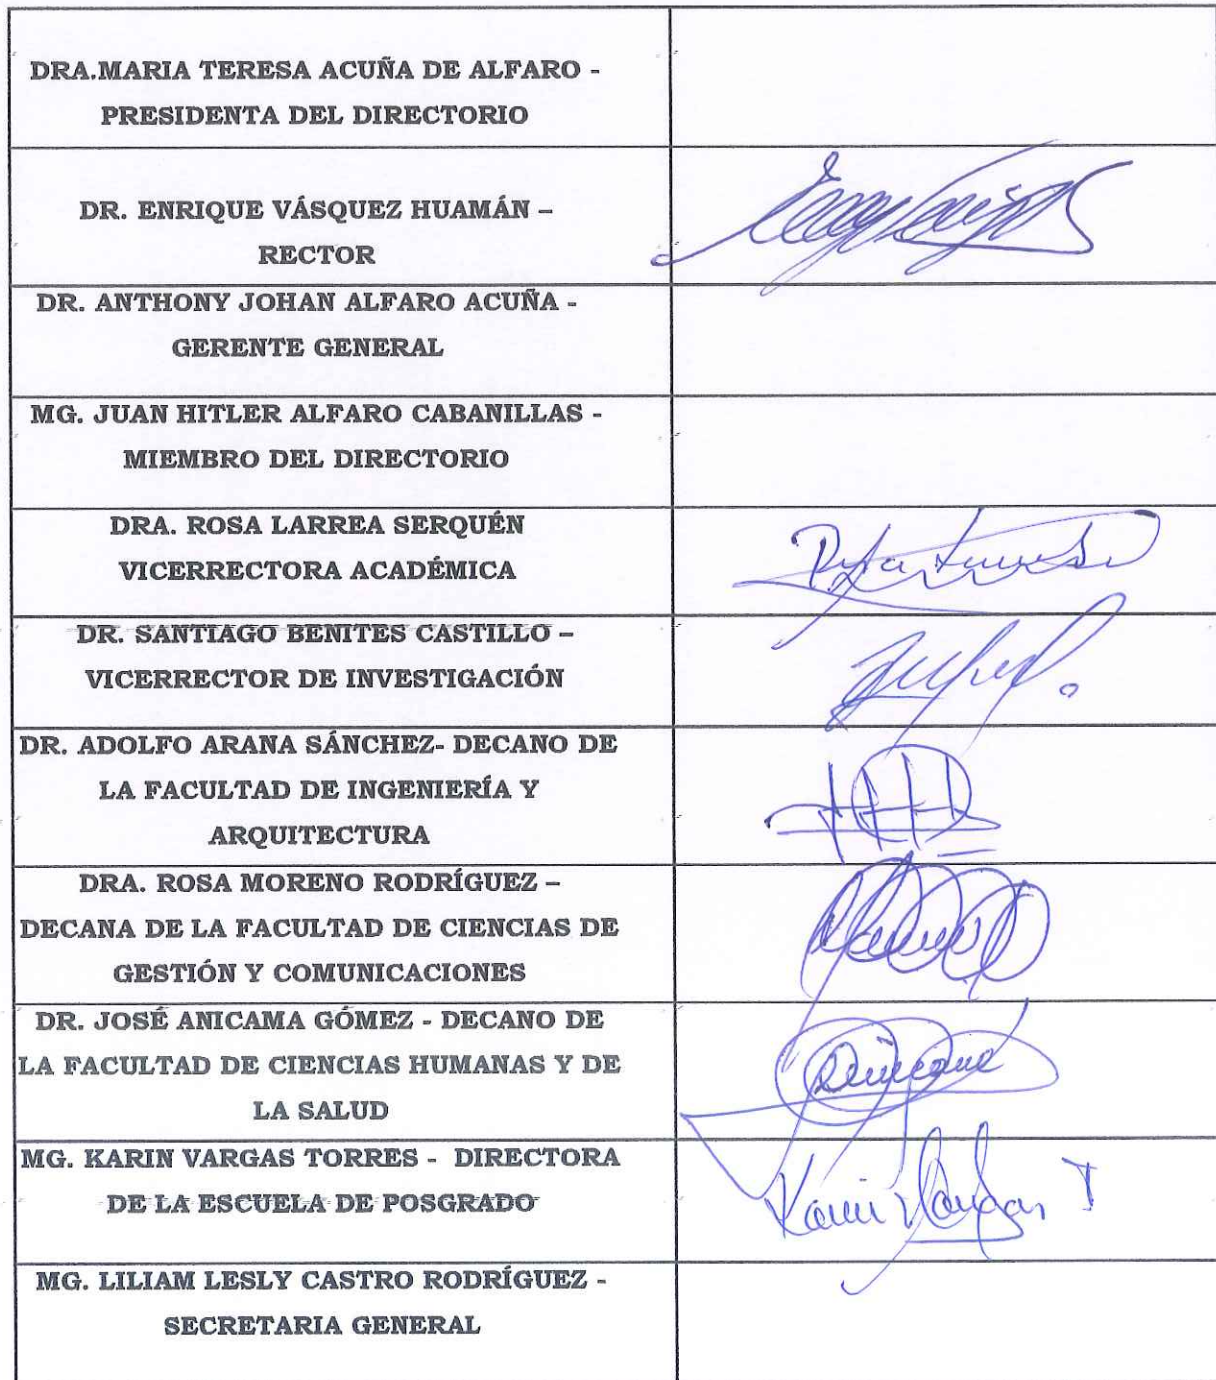 DRA.MARIA TERESA ACUÑA DE ALFARO -
PRESIDENTA DEL DIRECTORIO
DR. ENRIQUE VÁSQUEZ HUAMÁN –
RECTOR
DR. ANTHONY JOHAN ALFARO ACUÑA -
GERENTE GENERAL
MG. JUAN HITLER ALFARO CABANILLAS -
MIEMBRO DEL DIRECTORIO
DRA. ROSA LARREA SERQUÉN
VICERRECTORA ACADÉMICA
DR. SANTIAGO BENITES CASTILLO –
VICERRECTOR DE INVESTIGACIÓN
DR. ADOLFO ARANA SÁNCHEZ- DECANO DE
LA FACULTAD DE INGENIERÍA Y
ARQUITECTURA
DRA. ROSA MORENO RODRÍGUEZ –
DECANA DE LA FACULTAD DE CIENCIAS DE
GESTIÓN Y COMUNICACIONES
DR. JOSÉ ANICAMA GÓMEZ - DECANO DE
LA FACULTAD DE CIENCIAS HUMANAS Y DE
LA SALUD
MG. KARIN VARGAS TORRES - DIRECTORA
DE LA ESCUELA DE POSGRADO
Karin Vargas T
MG. LILIAM LESLY CASTRO RODRÍGUEZ -
SECRETARIA GENERAL